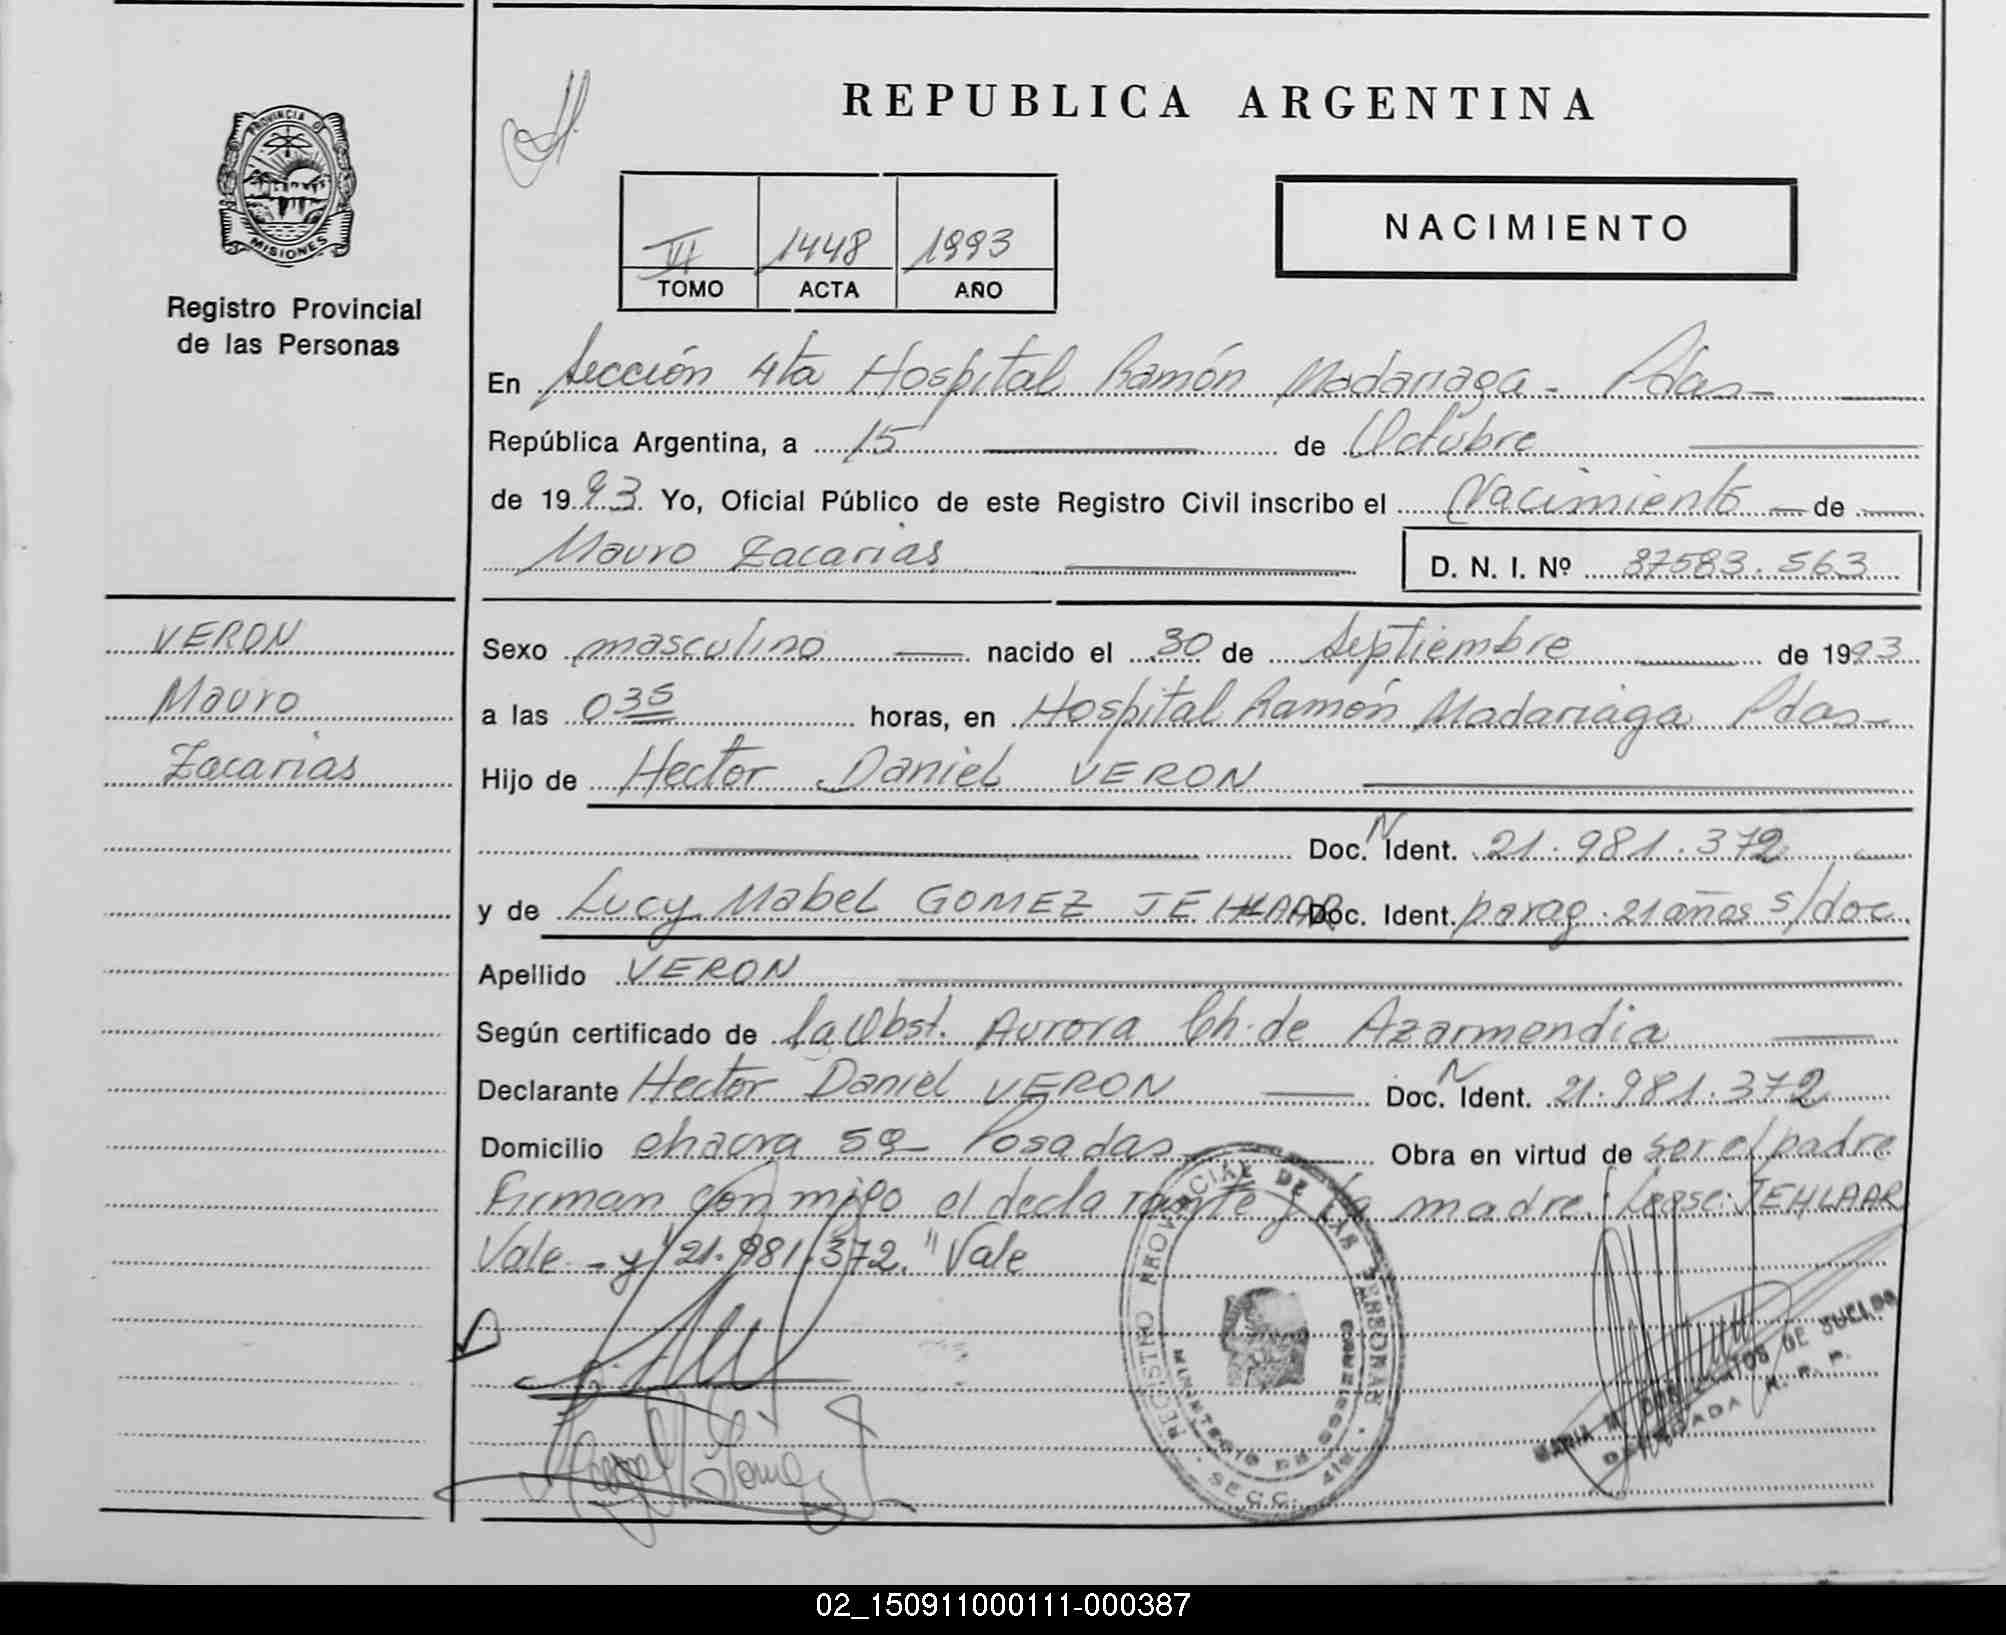 PROVINCIA D
MISIONES
Registro Provincial
de las Personas
REPUBLICA ARGENTINA
VI 1448 1993
TOMO ACTA AÑO
NACIMIENTO
En Sección 4ta Hospital Ramón Madariaga - Pdas -
República Argentina, a 15 de Octubre
de 1993. Yo, Oficial Público de este Registro Civil inscribo el Nacimiento de
Mauro Zacarias D. N. I. Nº 37583.563
VERON
Mauro
Zacarias
Sexo masculino nacido el 30 de Septiembre de 1993
a las 035 horas, en Hospital Ramón Madariaga Pdas -
Hijo de Hector Daniel VERON
Doc. N Ident. 21.981.372
y de Lucy Mabel GOMEZ JEHLAAR Doc. Ident. parag. 21 años s/doc
Apellido VERON
Según certificado de la Obst. Aurora Ch. de Azarmendia
Declarante Hector Daniel VERON Doc. N Ident. 21.981.372
Domicilio chacra 59 - Posadas Obra en virtud de ser el padre
Firman con migo el declarante y la madre. Lease: JEHLAAR
Vale - y "21.981.372." Vale
REGISTRO PROVINCIAL DE LAS PERSONAS
MINISTERIO DE
SECC. 4ta
MARIA M. DOS SANTOS DE SUELDO
DELEGADA R. P. P.
Gómez
02_150911000111-000387